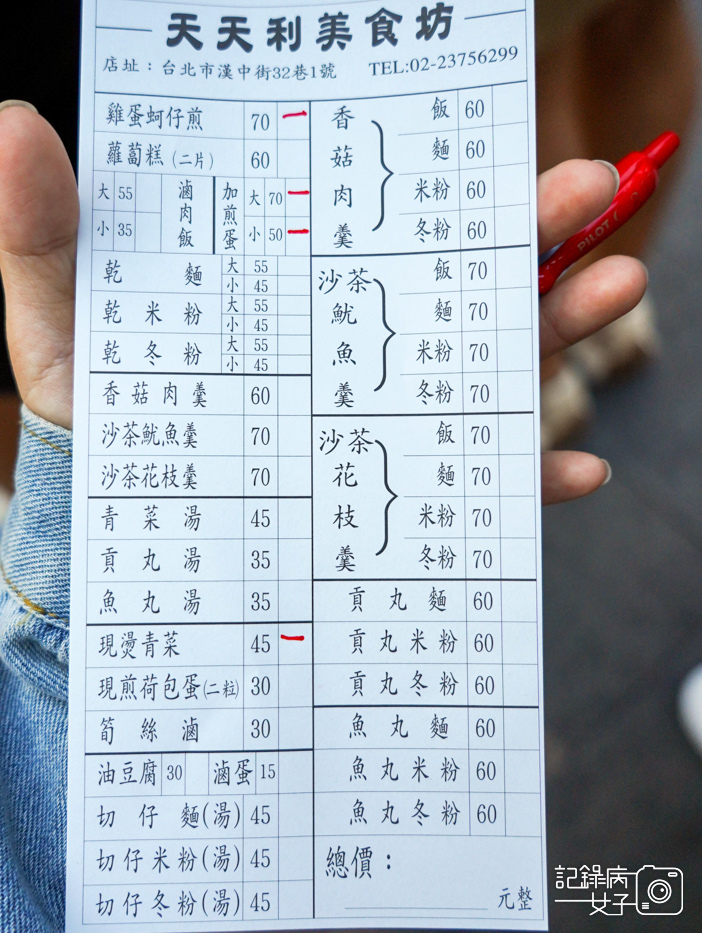 天天利美食坊
店址：台北市漢中街32巷1號 TEL:02-23756299
雞蛋蚵仔煎 70 一
蘿蔔糕(二片) 60
滷肉飯 大 55
小 35
加煎蛋 大 70 一
小 50 一
乾麵 大 55
小 45
乾米粉 大 55
小 45
乾冬粉 大 55
小 45
香菇肉羹 60
沙茶魷魚羹 70
沙茶花枝羹 70
青菜湯 45
貢丸湯 35
魚丸湯 35
現燙青菜 45 一
現煎荷包蛋(二粒) 30
筍絲滷 30
油豆腐 30 滷蛋 15
切仔麵(湯) 45
切仔米粉(湯) 45
切仔冬粉(湯) 45
香菇肉羹 飯 60
麵 60
米粉 60
冬粉 60
沙茶魷魚羹 飯 70
麵 70
米粉 70
冬粉 70
沙茶花枝羹 飯 70
麵 70
米粉 70
冬粉 70
貢丸麵 60
貢丸米粉 60
貢丸冬粉 60
魚丸麵 60
魚丸米粉 60
魚丸冬粉 60
總價：
元整
PILOT
記錄病
女子